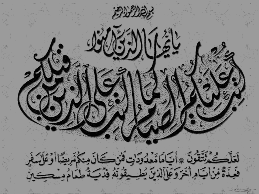 بسم الله الرحمن الرحيم
يا أيها الذين آمنوا
كتب عليكم الصيام كما كتب على الذين من قبلكم
لعلكم تتقون * أياما معدودات فمن كان منكم مريضا أو على سفر
فعدة من أيام أخر وعلى الذين يطيقونه فدية طعام مسكين